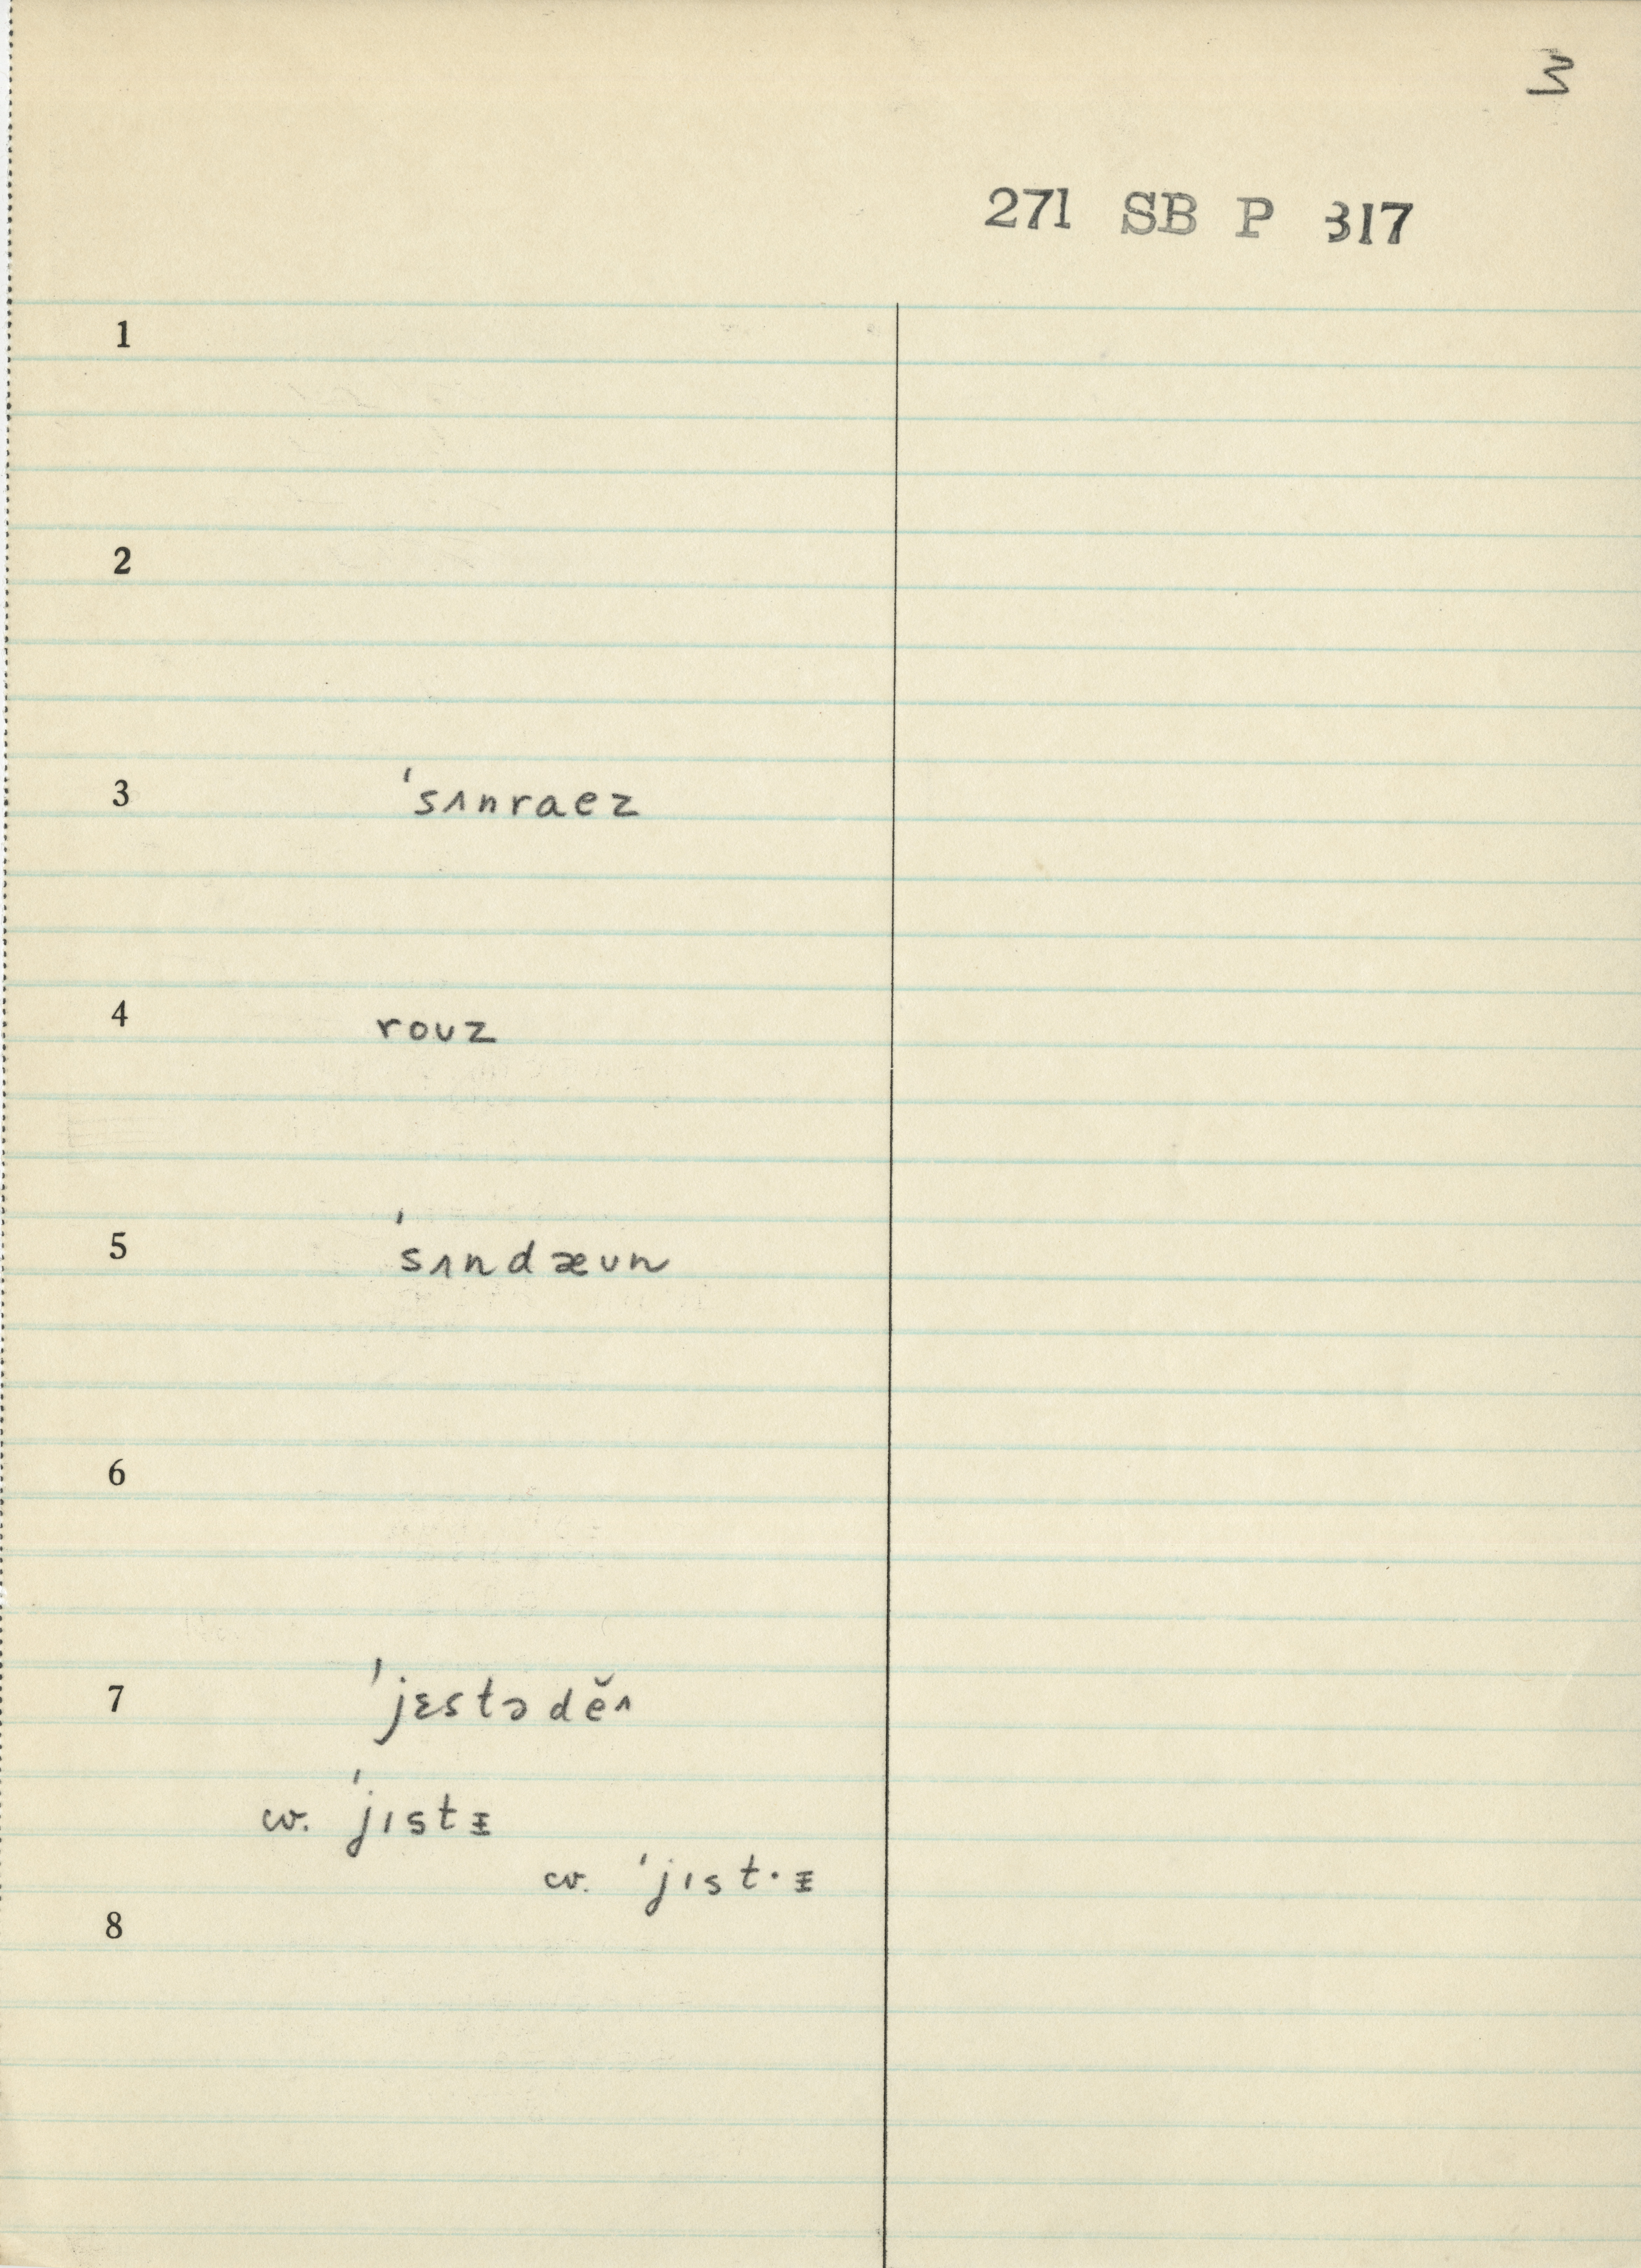 3
271 SB P 317
1
2
3 ˈsʌnraez
4 roʊz
5 ˈsʌndæʊn
6
7 ˈjɛstədĕᶺ
cv. ˈjɪstᵻ
cv. ˈjɪst·ᵻ
8